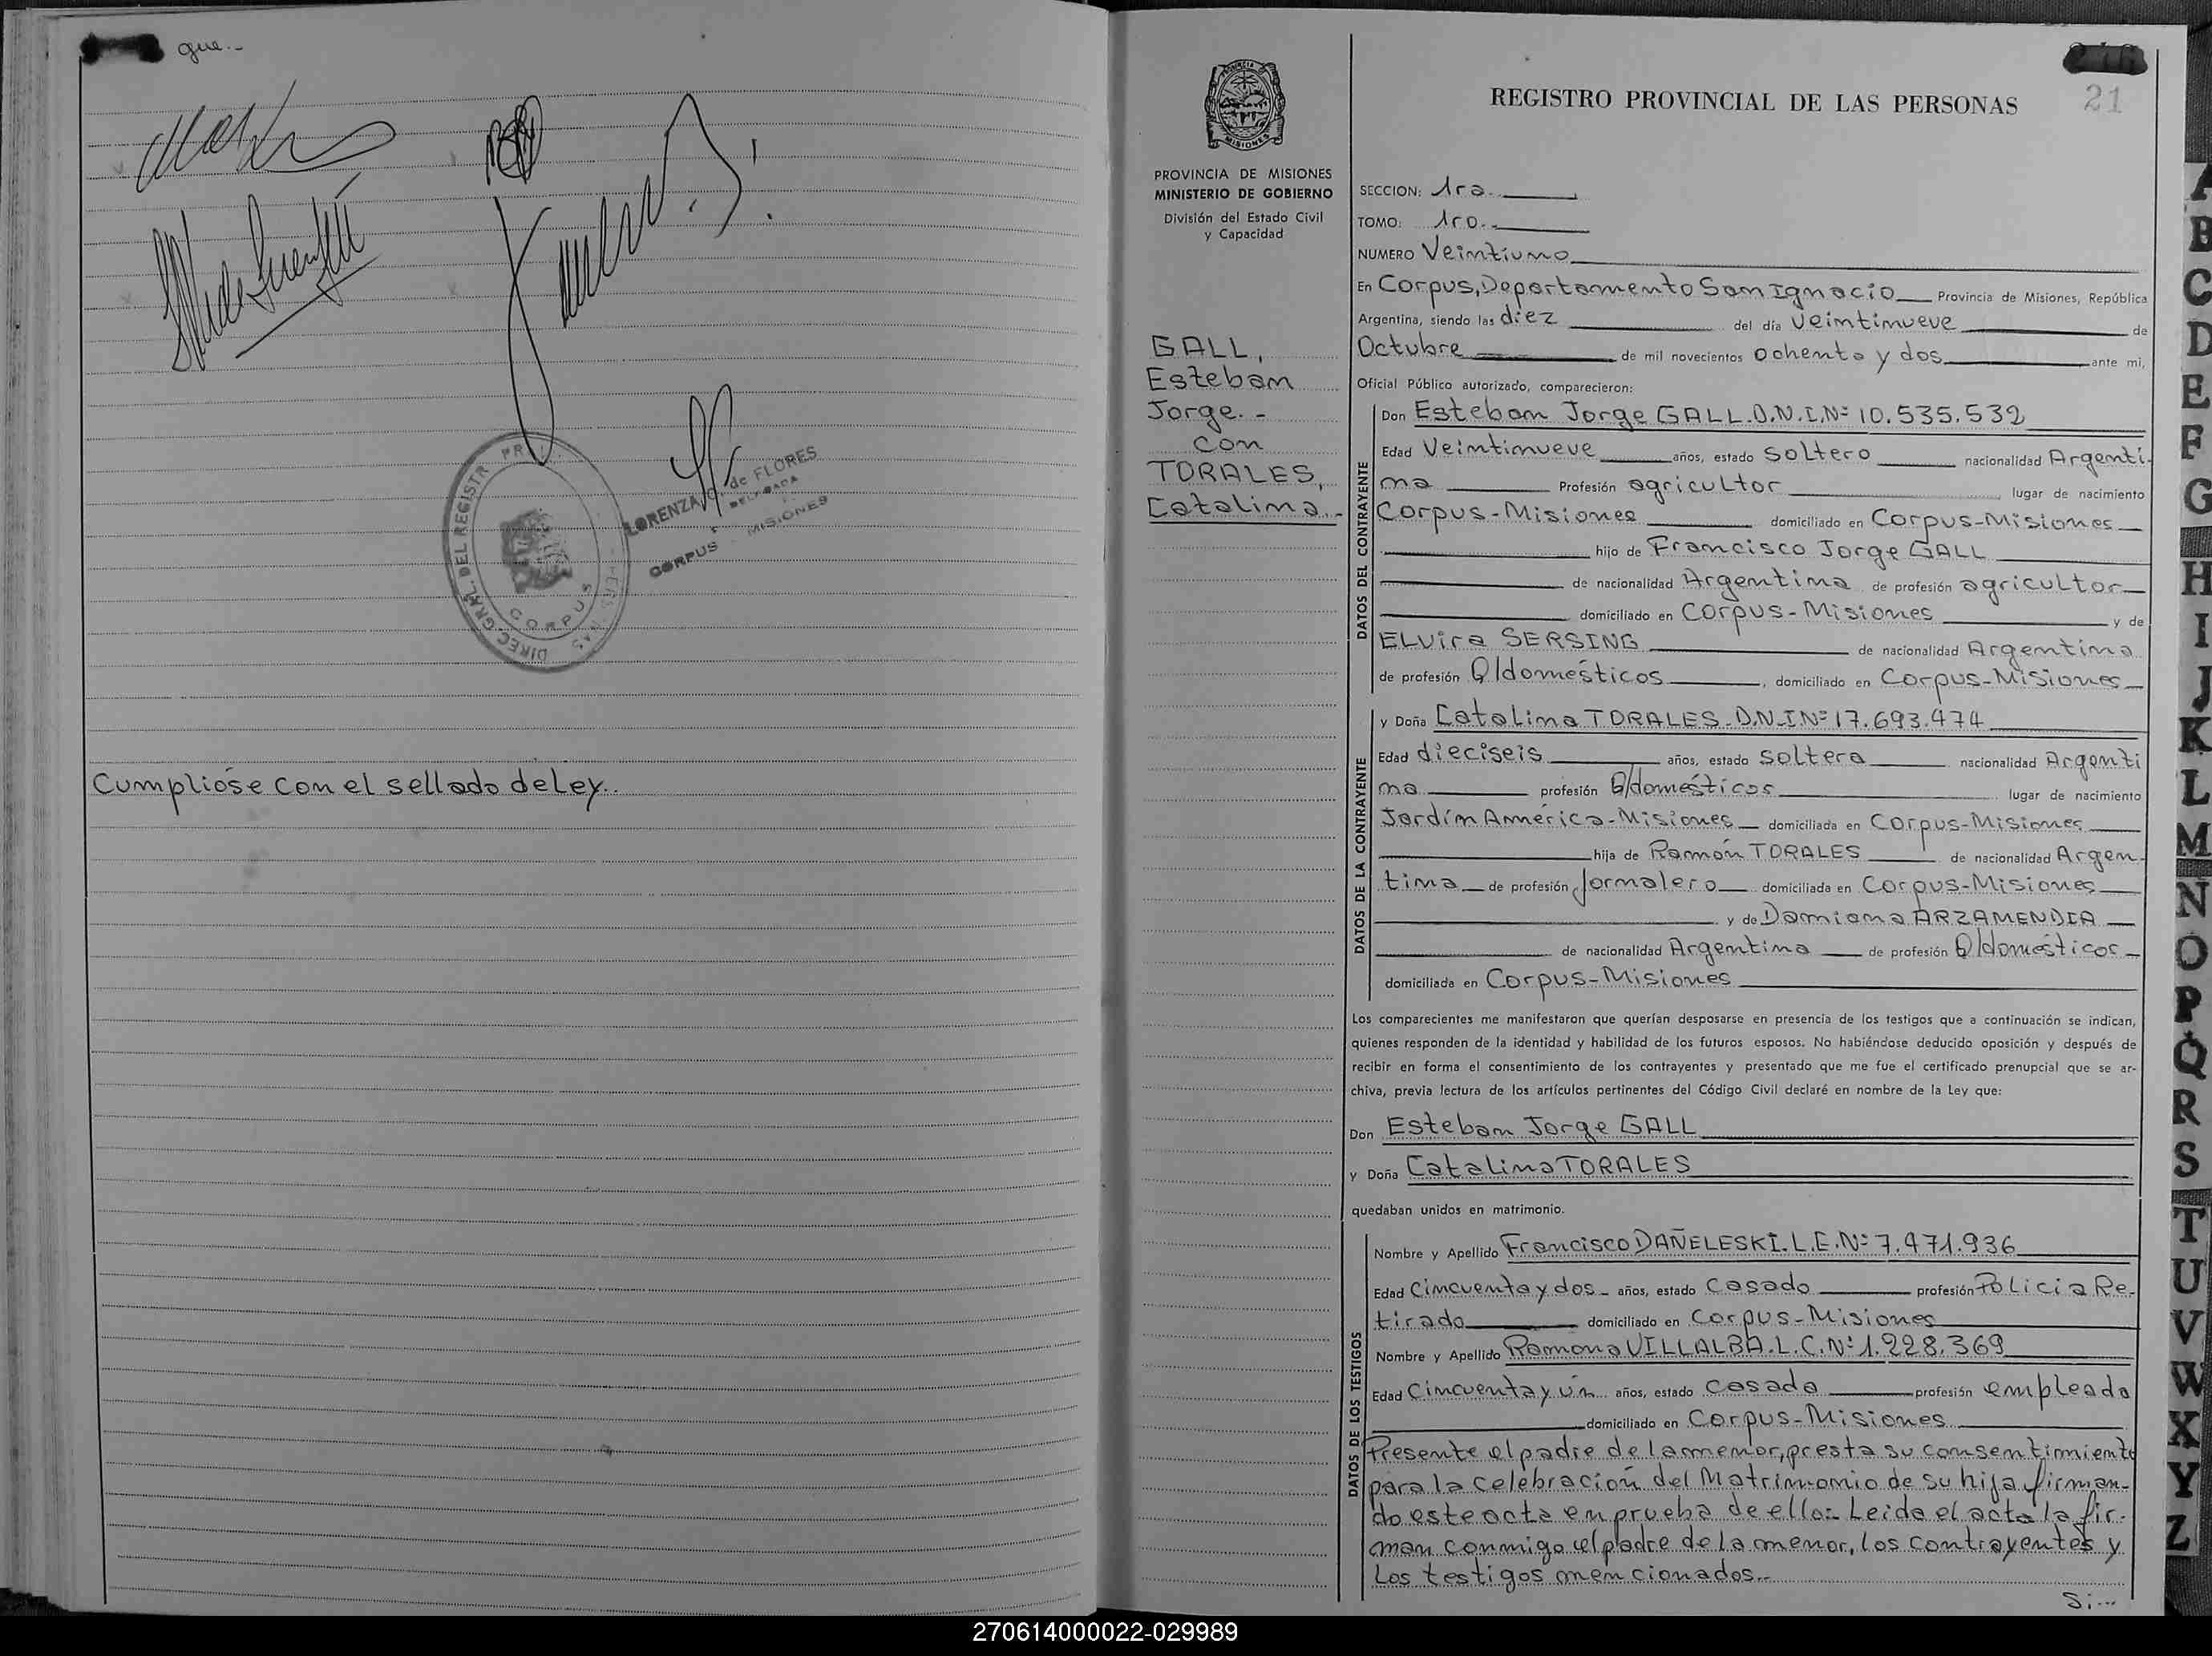 que.-
LORENZA de FLORES
DELEGADA
CORPUS - MISIONES
DIREC. GRAL. DEL REGISTR PR
CORPUS
Cumplióse con el sellado de Ley..
PROVINCIA DE MISIONES
MINISTERIO DE GOBIERNO
División del Estado Civil
y Capacidad
GALL,
Esteban
Jorge.-
con
TORALES,
Catalina.-
REGISTRO PROVINCIAL DE LAS PERSONAS
21
SECCION: 1ra.
TOMO: 1ro.-
NUMERO Veintiuno
En Corpus, Departamento San Ignacio Provincia de Misiones, República
Argentina, siendo las diez del día veintinueve de
Octubre de mil novecientos ochenta y dos ante mi,
Oficial Público autorizado, comparecieron:
DATOS DEL CONTRAYENTE
Don Esteban Jorge GALL.D.N.I.Nº 10.535.532
Edad Veintinueve años, estado soltero nacionalidad Argenti-
na Profesión agricultor lugar de nacimiento
Corpus-Misiones domiciliado en Corpus-Misiones
hijo de Francisco Jorge GALL
de nacionalidad Argentina de profesión agricultor
domiciliado en Corpus-Misiones y de
ELvira SERSING de nacionalidad Argentina
de profesión Q/domésticos, domiciliado en Corpus-Misiones
DATOS DE LA CONTRAYENTE
y Doña Catalina TORALES.D.N.I.Nº 17.693.474
Edad dieciseis años, estado soltera nacionalidad Argenti
na profesión Q/domésticos lugar de nacimiento
Jardín América-Misiones domiciliada en Corpus-Misiones
hija de Ramón TORALES de nacionalidad Argen-
tina de profesión jornalero domiciliada en Corpus-Misiones
y de Damiana ARZAMENDIA
de nacionalidad Argentina de profesión Q/domésticos
domiciliada en Corpus-Misiones
Los comparecientes me manifestaron que querían desposarse en presencia de los testigos que a continuación se indican,
quienes responden de la identidad y habilidad de los futuros esposos. No habiéndose deducido oposición y después de
recibir en forma el consentimiento de los contrayentes y presentado que me fue el certificado prenupcial que se ar-
chiva, previa lectura de los artículos pertinentes del Código Civil declaré en nombre de la Ley que:
Don Esteban Jorge GALL
y Doña Catalina TORALES
quedaban unidos en matrimonio.
DATOS DE LOS TESTIGOS
Nombre y Apellido Francisco DAÑELESKI.L.E.Nº 7.471.936
Edad Cincuenta y dos años, estado casado profesión Policia Re-
tirado domiciliado en Corpus-Misiones
Nombre y Apellido Ramona VILLALBA.L.C.Nº 1.228.369
Edad Cincuenta y ún años, estado casada profesión empleada
domiciliado en Corpus-Misiones
Presente el padre de la menor, presta su consentimiento
para la celebración del Matrimonio de su hija firman-
do este acta en prueba de ello:- Leída el acta la fir-
man conmigo el padre de la menor, los contrayentes y
Los testigos mencionados.-
Si...
A
B
C
D
E
F
G
H
I
J
K
L
M
N
O
P
Q
R
S
T
U
V
W
X
Y
Z
270614000022-029989